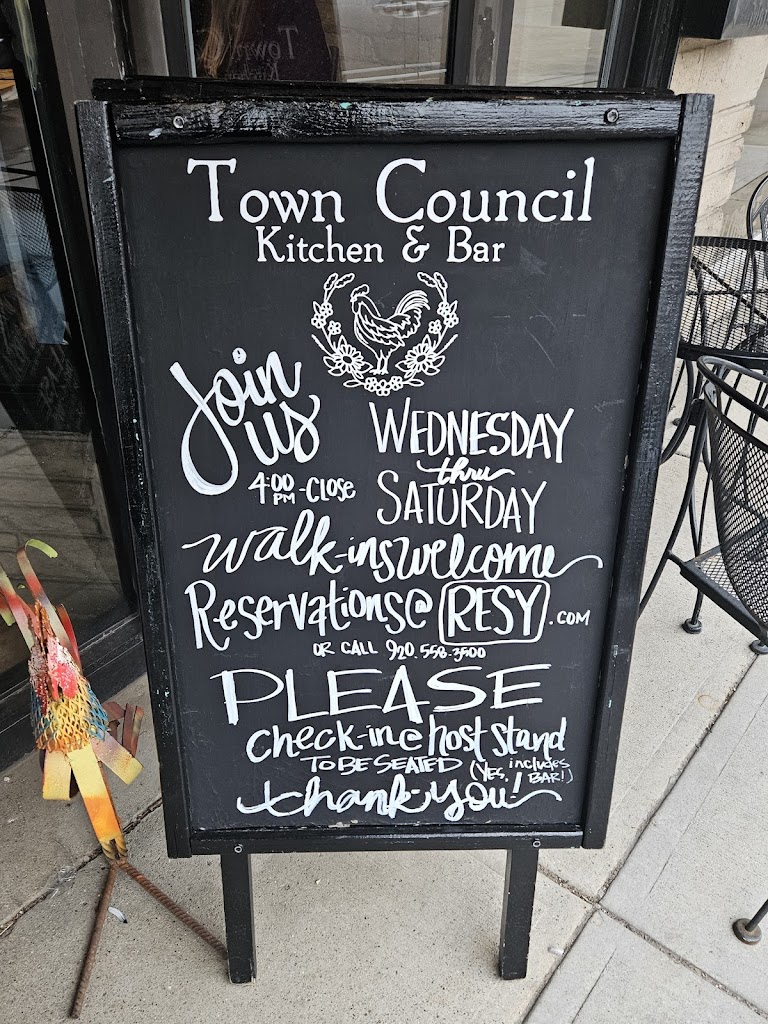 Town Council
Kitchen & Bar
Join
us
4:00 PM - Close
WEDNESDAY
thru
SATURDAY
walk-ins welcome
Reservations @ RESY.COM
OR CALL 920.558.3500
PLEASE
check-in @ host stand
TO BE SEATED (YES, includes BAR!)
thank-you!